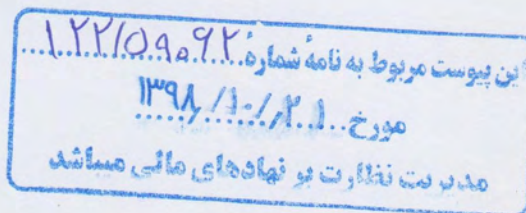 این پیوست مربوط به نامهٔ شمارهٔ ۱۲۲/۵۹۰۹۲
مورخ ۱۳۹۸/۱۰/۲۱
مدیریت نظارت بر نهادهای مالی میباشد